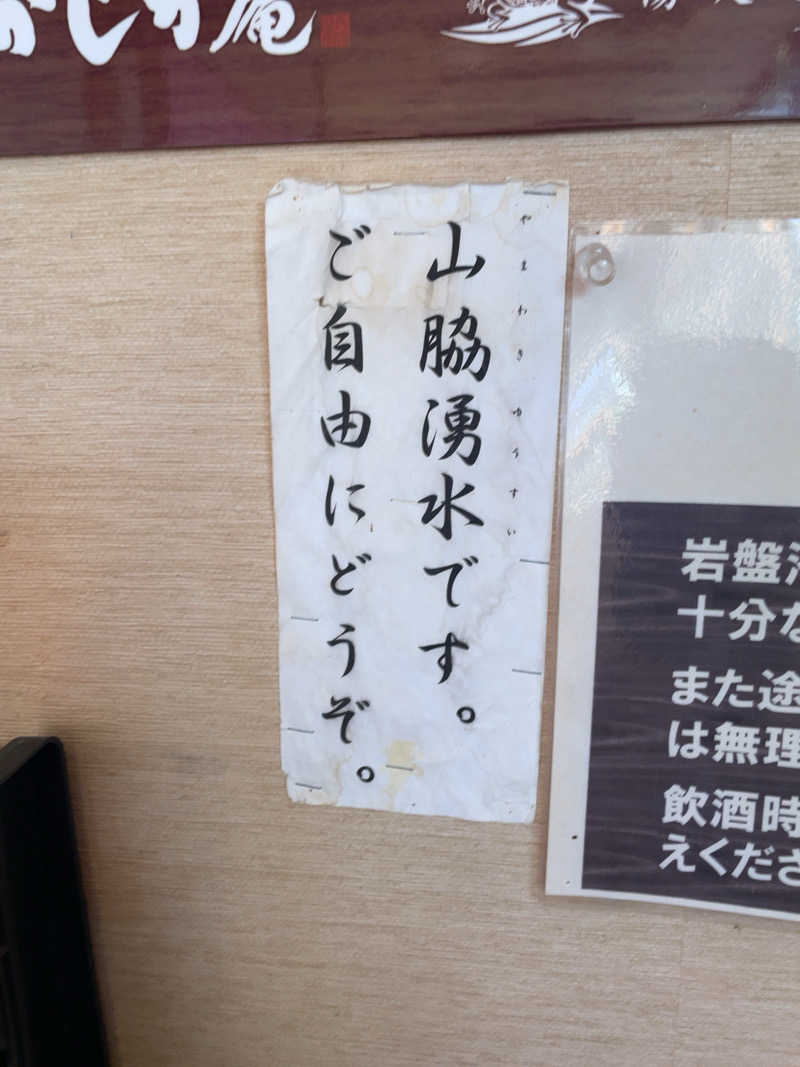 庵
やまわきゆうすい
山脇湧水です。
ご自由にどうぞ。
岩盤
十分な
また途
は無理
飲酒時
えくださ